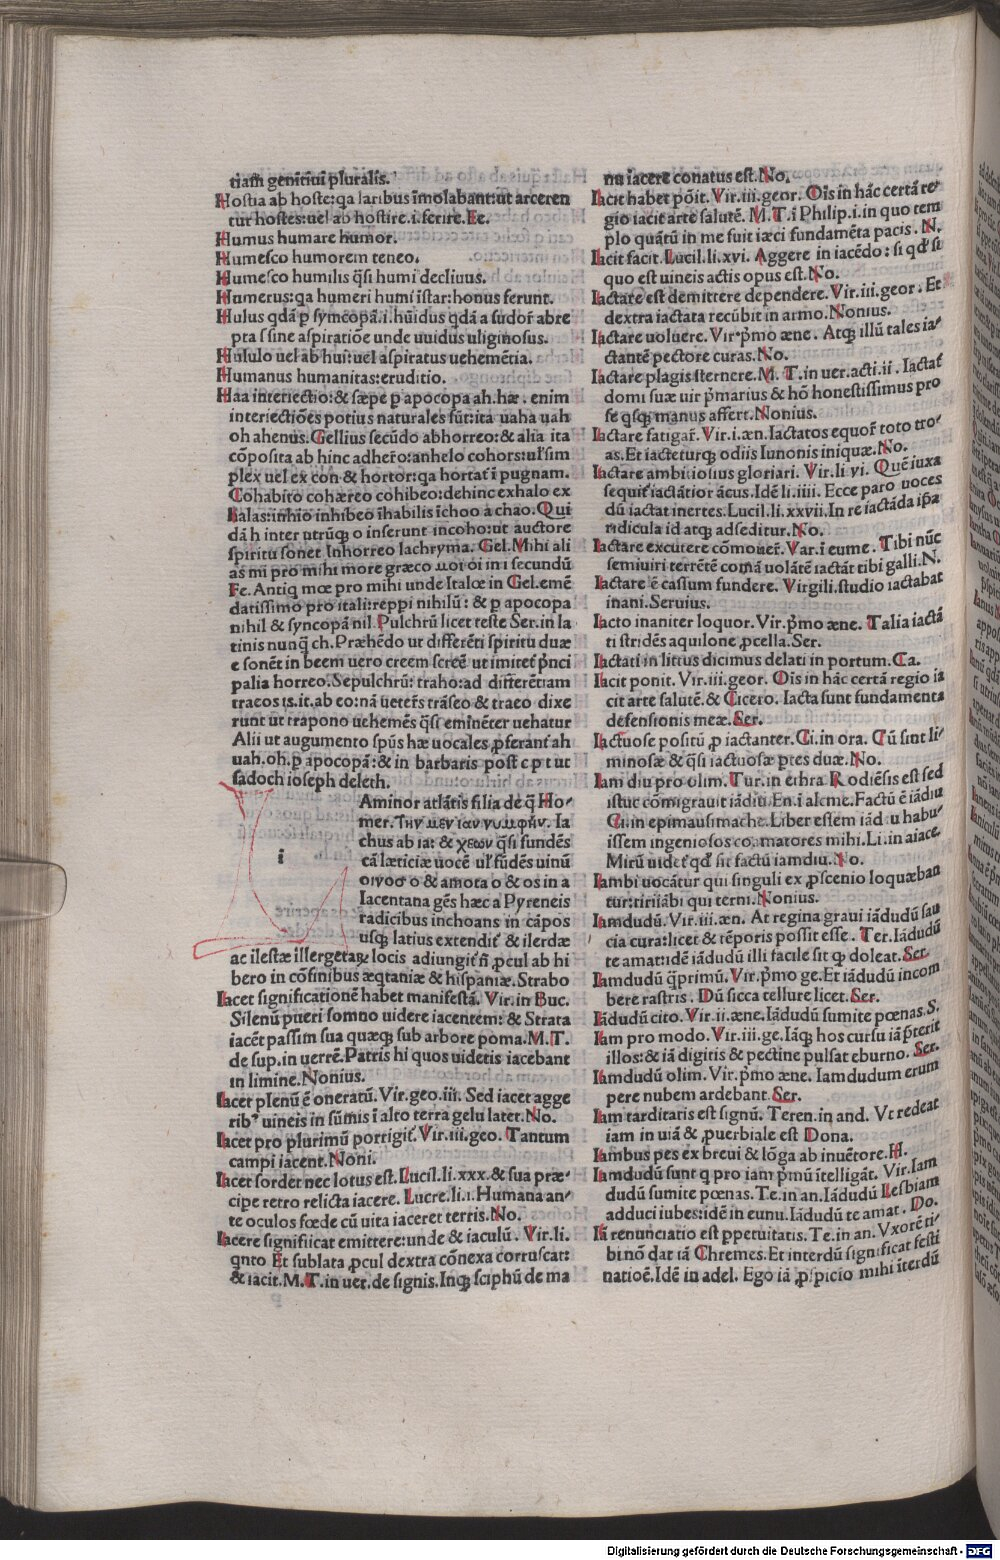 tiam genitiui pluralis.
Hostia ab hoste:qa laribus īmolabant:ut arceren
tur hostes:uel ab hostire.i.ferire.Fe.
Humus humare humor.
Humesco humorem teneo.
Humesco humilis q̄si humi decliuus.
Humerus:qa humeri humi īstar:honus ferunt.
Hulus qdā p syncopā.i.hūidus qdā a sudoř abre
pta s sine aspiratiōe unde uuidus uliginosus.
Hululo uel ab hui:uel aspiratus uehemētia.
Humanus humanitas:eruditio.
Haa interiectio:& sæpe p apocopa ah.hæ. enim
interiectiões potius naturales fūt:ita uaha uah
oh ahenus. Gellius secūdo abhorreo:& alia ita
cōposita ab hinc adheřo:anhelo cohors:uľ sim
plex uel ex con & hortor:qa hortať ī pugnam.
Cohabito cohæreo cohibeo:dehinc exhalo ex
halas:inhio inhibeo īhabilis ichoo a chao. Qui
dā h inter utrūq; o inserunt incoho:ut auctore
spiritu sonet Inhorreo lachryma. Gel.Mihi ali
as mi pro mihi more græco μοι οι in i secundū
Fe. Antiq mœ pro mihi unde Italœ in Gel.emē
datissimo pro itali:reppi nihilū: & p apocopa
nihil & syncopā nil. Pulchrū licet teste Ser.in la
tinis nunq̄ ch. Præhēdo ut differēti spiritu duæ
e sonēt in beem uero creem screē ut imiteť p̄nci
palia horreo. Sepulchrū: traho:ad differētiam
traeos is.it.ab eo:nā ueteřs trāseo & traeo dixe
runt ut trapono uehemēs q̄si eminēter uehatur
Alii ut augumento spūs hæ uocales ꝓferanť ah
uah.oh.p apocopā:& in barbaris post c p t ut
sadoch ioseph deleth.
i
Aminor atlātis filia de q̄ Ho-
mer. Την μεν ιαν νυμφην. Ia
chus ab ia: & χεων q̄si fundēs
cā læticiæ uocē uľ fūdēs uinū
οινοσ o & amota o & os in a
Iacentana gēs hæc a Pyreneis
radicibus inchoans in cāpos
usq; latius extendiť & ilerdæ
ac ilestæ illergetaꝝ locis adiungiť n̄ ꝓcul ab hi
bero in cōfinibus æqtaniæ & hispaniæ. Strabo
Iacet significationē habet manifestā. Vir.in Buc.
Silenū pueri somno uidere iacentem: & Strata
iacēt passim sua quæq; sub arbore poma.M.T.
de sup.in uerrē.Patris hi quos uidetis iacebant
in limine.Nonius.
Iacet plenū ē oneratū. Vir.geo.iii. Sed iacet agge
rib⁹ uineis in sūmis ī alto terra gelu later.No.
Iacet pro plurimū porrigiť.Vir.iii.geo. Tantum
campi iacent.Noni.
Iacet sordet nec lotus est.Lucil.li.xxx.& sua præ-
cipe retro relicta iacere. Lucre.li.i.Humana an-
te oculos fœde cū uita iaceret terris.No.
Iacere significat emittere:unde & iaculū. Vir.li.
qnto Et sublata ꝓcul dextra cōnexa corruscat:
& iacit.M.T.in uer.de signis.Inq; sciphū de ma
nu iacere conatus est.No.
Iacit habet pōit. Vir.iii.geor. Dis in hāc certā re-
gio iacit arte salutē. M.T.ī Philip.i.in quo tem
plo quātū in me fuit iæci fundamēta pacis. N.
Iacit facit.Lucil.li.xvi. Aggere in iacēdo: si qď si
quo est uineis actis opus est.No.
Iactare est demittere dependere. Vir.iii.geor. Et
dextra iactata recūbit in armo.Nonius.
Iactare uoluere. Vir.p̄mo æne. Atq; illū tales ia-
ctantē pectore curas.No.
Iactare plagis sternere.M.T.in uer.acti.ii. Iactať
domi suæ uir p̄marius & hō honestissimus pro
se qsq; manus affert.Nonius.
Iactare fatigař. Vir.i.æn.Iactatos equoř toto tro-
as.Et iacteturq; odiis Iunonis iniquæ.No.
Iactare ambitiosius gloriari. Vir.li vi. Quē iuxa
sequiť iactātior ácus.Idē li.iiii. Ecce paro uoces
dū iactat inertes.Lucil.li.xxvii.In re iactāda ip̄a
ridicula id atq; adseditur.No.
Iactare excutere cōmoueř. Var.ī eume. Tibi nūc
semiuiri terrētē comā uolātē iactāt tibi galli.N.
Iactare ē cassum fundere. Virgili.studio iactabat
inani.Seruius.
Iacto inaniter loquor.Vir.p̄mo æne. Talia iactā
ti stridēs aquilone ꝓcella.Ser.
Iactati in littus dicimus delati in portum.Ca.
Iacit ponit. Vir.iii.geor. Dis in hāc certā regio ia
cit arte salutē.& Cicero. Iacta sunt fundamenta
defensionis meæ.Ser.
Iactuose positū ꝓ iactanter.Ci.in ora. Cū sint li-
minosæ & q̄si iactuosæ ptes duæ.No.
Iam diu pro olim.Tur.in ethra Rodiēsis est sed
istuc cōmigrauit iādiu.En.i alcme.Factū ē iādiu
Ci.in epimausimache.Liber essem iād u habu-
issem ingeniosos co.amatores mihi.Li.in aiace.
Mirū uideť qď sit factū iamdiu.No.
Iambi uocātur qui singuli ex ꝓscenio loquæban
tur:tiriiābi qui terni.Nonius.
Iamdudū.Vir.iiii.æn. At regina graui iādudū sau
cia cura:licet & tēporis possit esse. Ter.Iādudū
te amat:idē iādudū illi facile sit q̄ doleat.Ser.
Iamdudū q̄primū. Vir.p̄mo ge.Et iādudū incom
bere rastris. Dū sicca tellure licet.Ser.
Iādudū cito. Vir.ii.æne.Iādudū sumite pœnas.S.
Iam pro modo. Vir.iii.ge.Iāq; hos cursu iā p̄terit
illos:& iā digitis & pectine pulsat eburno. Ser.
Iamdudū olim. Vir.p̄mo æne. Iamdudum erum
pere nubem ardebant.Ser.
Iam tarditatis est signū. Teren.in and. Vt redeat
iam in uiā & ꝓuerbiale est Dona.
Iambus pes ex breui & lōga ab inuētore.H.
Iamdudū sunt q pro iam p̄mū ītelligāt. Vir.Iam
dudū sumite pœnas. Te.in an.Iādudū Lesbiam
adduci iubes:idē in eunu.Iādudū te amat. Do.
Iā renunciatio est ppetuitatis. Te.in an. Vxorē ti-
bi nō dat iā Chremes.Et interdū significat festi
natioē.Idē in adel. Ego iā ꝓspicio mihi iterdū
Digitalisierung gefördert durch die Deutsche Forschungsgemeinschaft - DFG